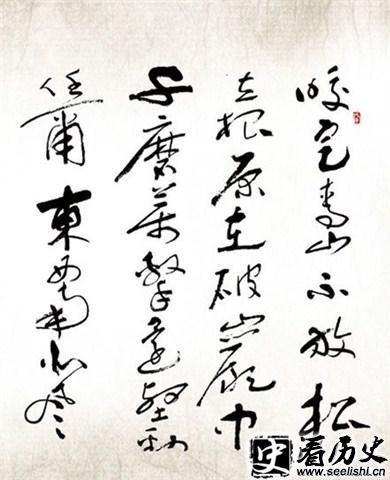 咬定青山不放松
立根原在破岩中
千磨万击还坚劲
任尔东西南北风
史
看历史
www.seelishi.cn